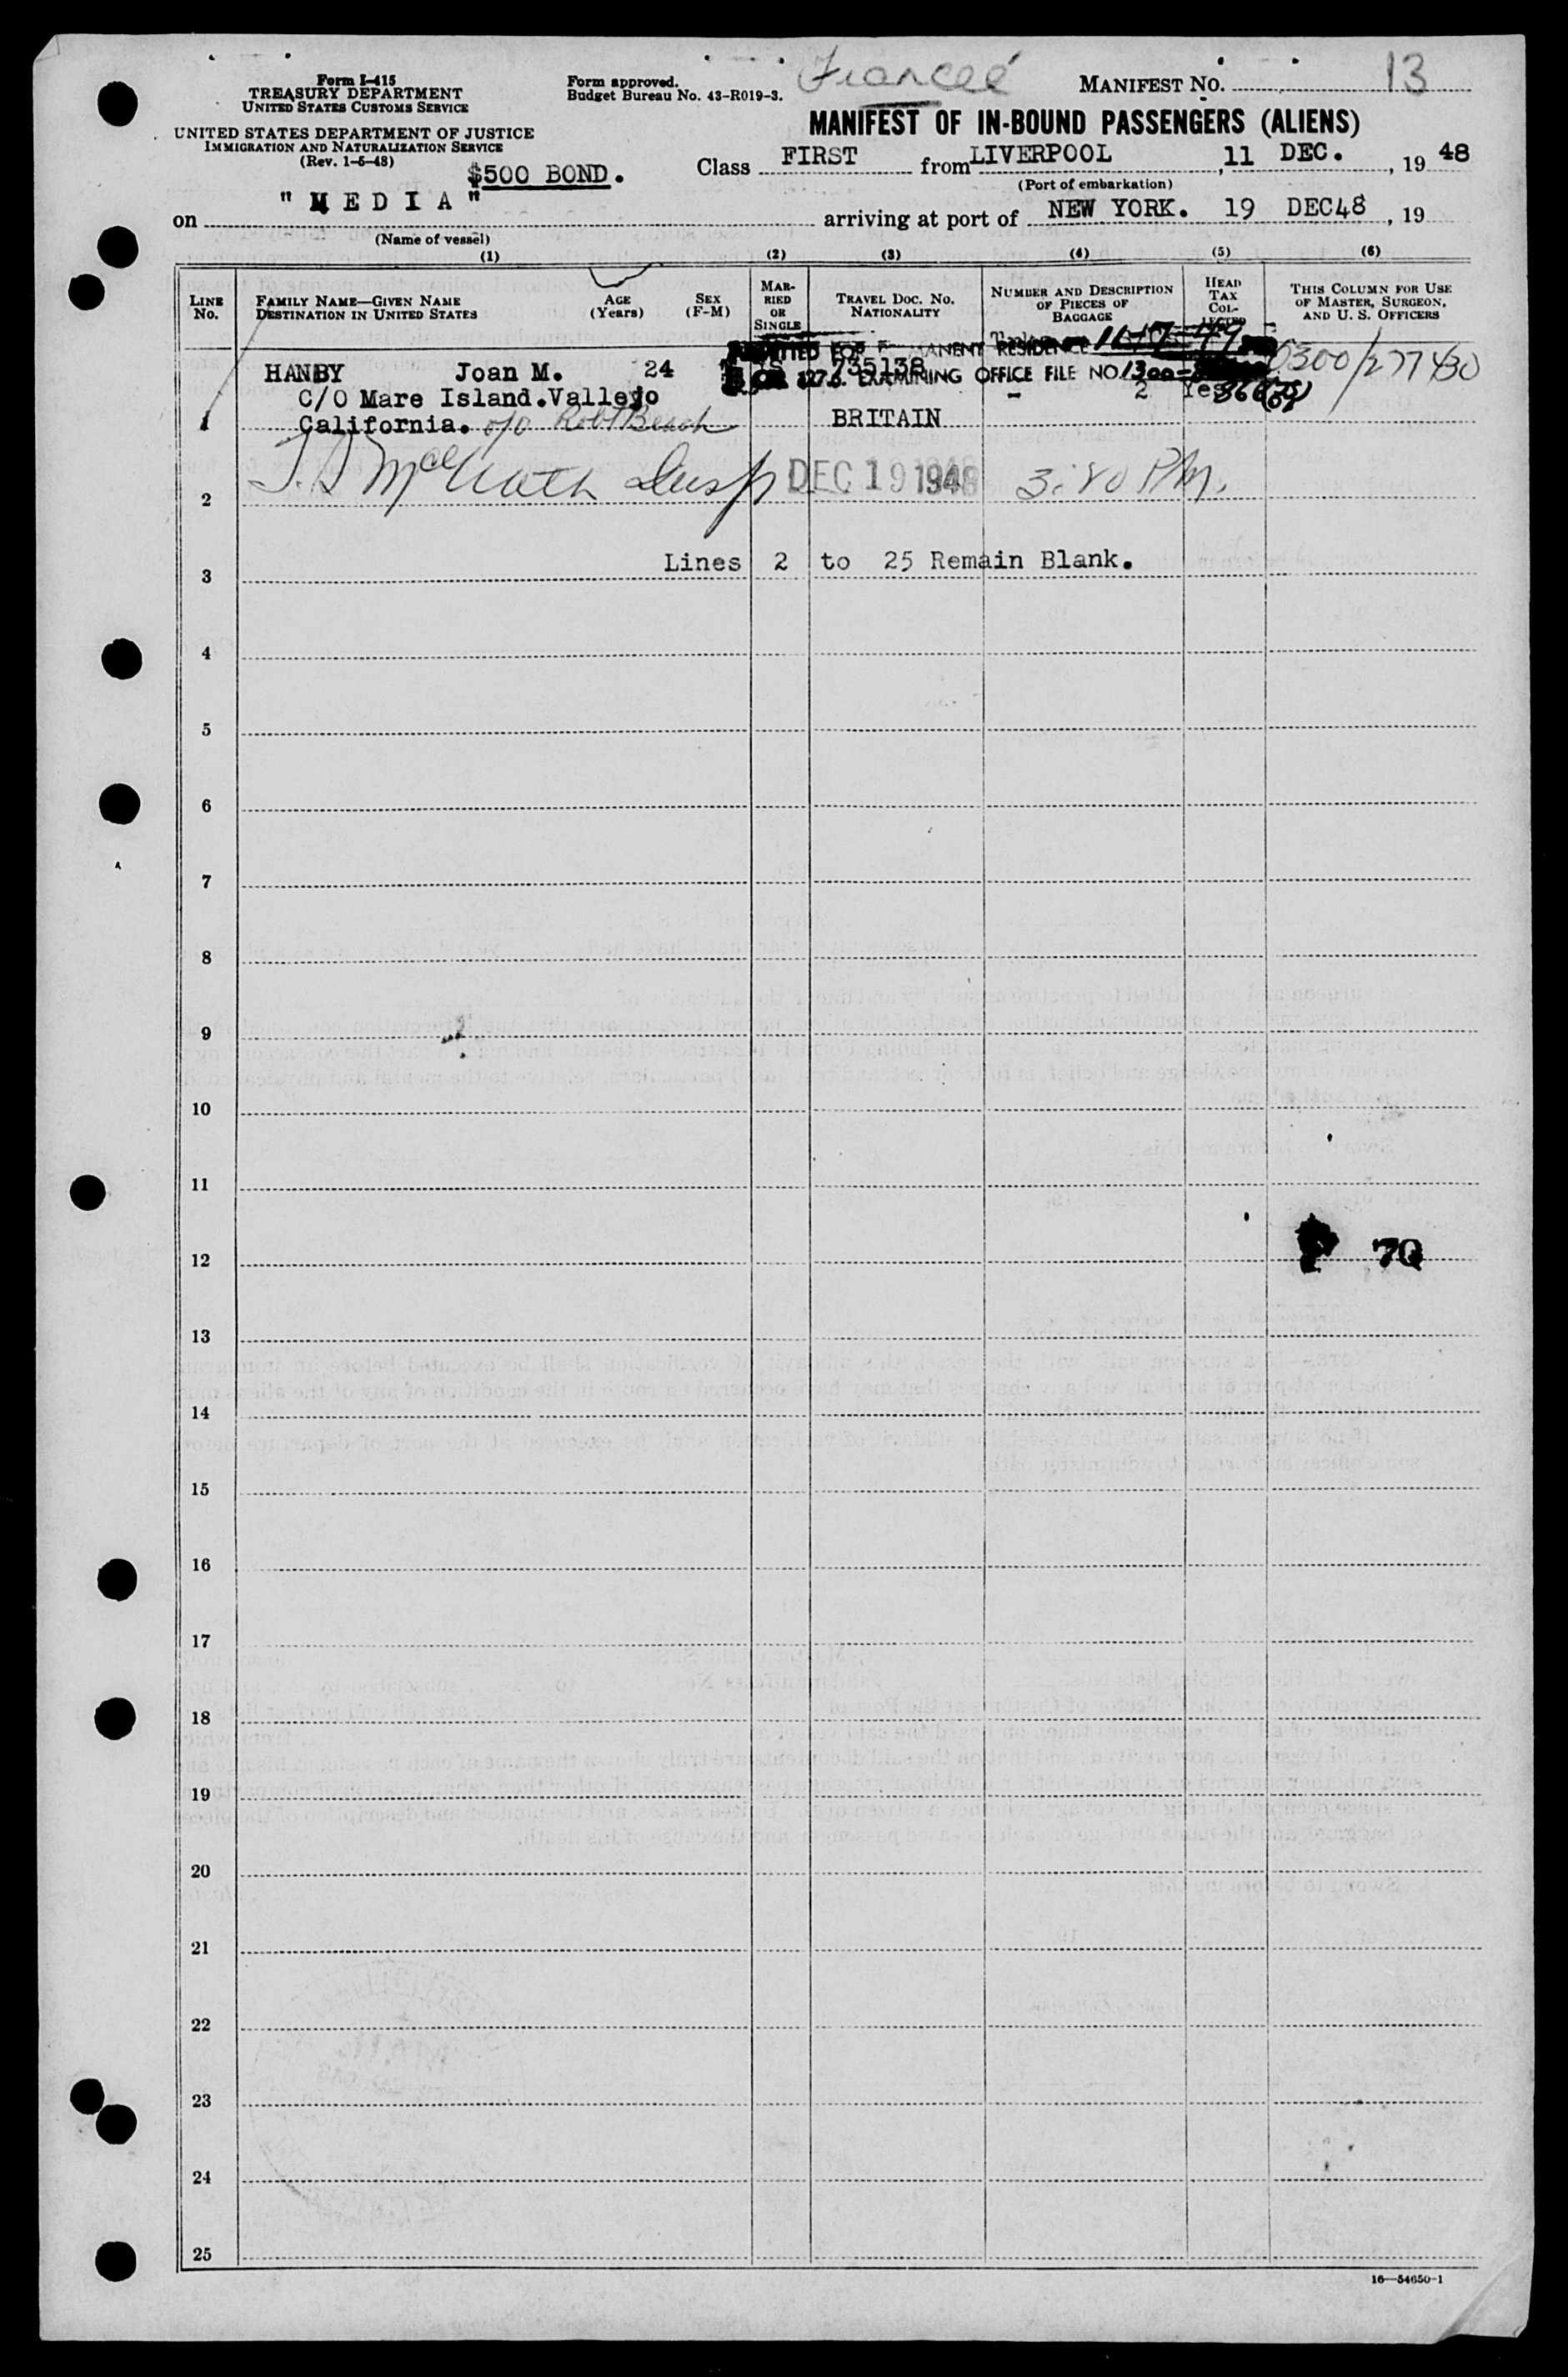 Form I-415
TREASURY DEPARTMENT
UNITED STATES CUSTOMS SERVICE
UNITED STATES DEPARTMENT OF JUSTICE
IMMIGRATION AND NATURALIZATION SERVICE
(Rev. 1-5-48)
Form approved.
Budget Bureau No. 43-R019-3.
Fianceé
MANIFEST NO. 13
MANIFEST OF IN-BOUND PASSENGERS (ALIENS)
$500 BOND.
Class FIRST from LIVERPOOL, 11 DEC., 19 48
(Port of embarkation)
on "MEDIA" arriving at port of NEW YORK. 19 DEC48, 19
(Name of vessel)
(1) (2) (3) (4) (5) (6)
LINE No.
FAMILY NAME—GIVEN NAME DESTINATION IN UNITED STATES
AGE (Years)
SEX (F-M)
MARRIED OR SINGLE
TRAVEL DOC. NO. NATIONALITY
NUMBER AND DESCRIPTION OF PIECES OF BAGGAGE
HEAD TAX COLLECTED
THIS COLUMN FOR USE OF MASTER, SURGEON, AND U. S. OFFICERS
FOR PERMANENT RESIDENCE 11-17-49
HANBY Joan M. 24 S 735138 0300/277430
EXAMINING OFFICE FILE NO. 1300-
C/O Mare Island.Vallejo - 2 Yes
1 California. c/o Robt Beach BRITAIN
2 DEC 19 1948 3:80 PM.
Lines 2 to 25 Remain Blank.
3
4
5
6
7
8
9
10
11
12 70
13
14
15
16
17
18
19
20
21
22
23
24
25
16—54650-1